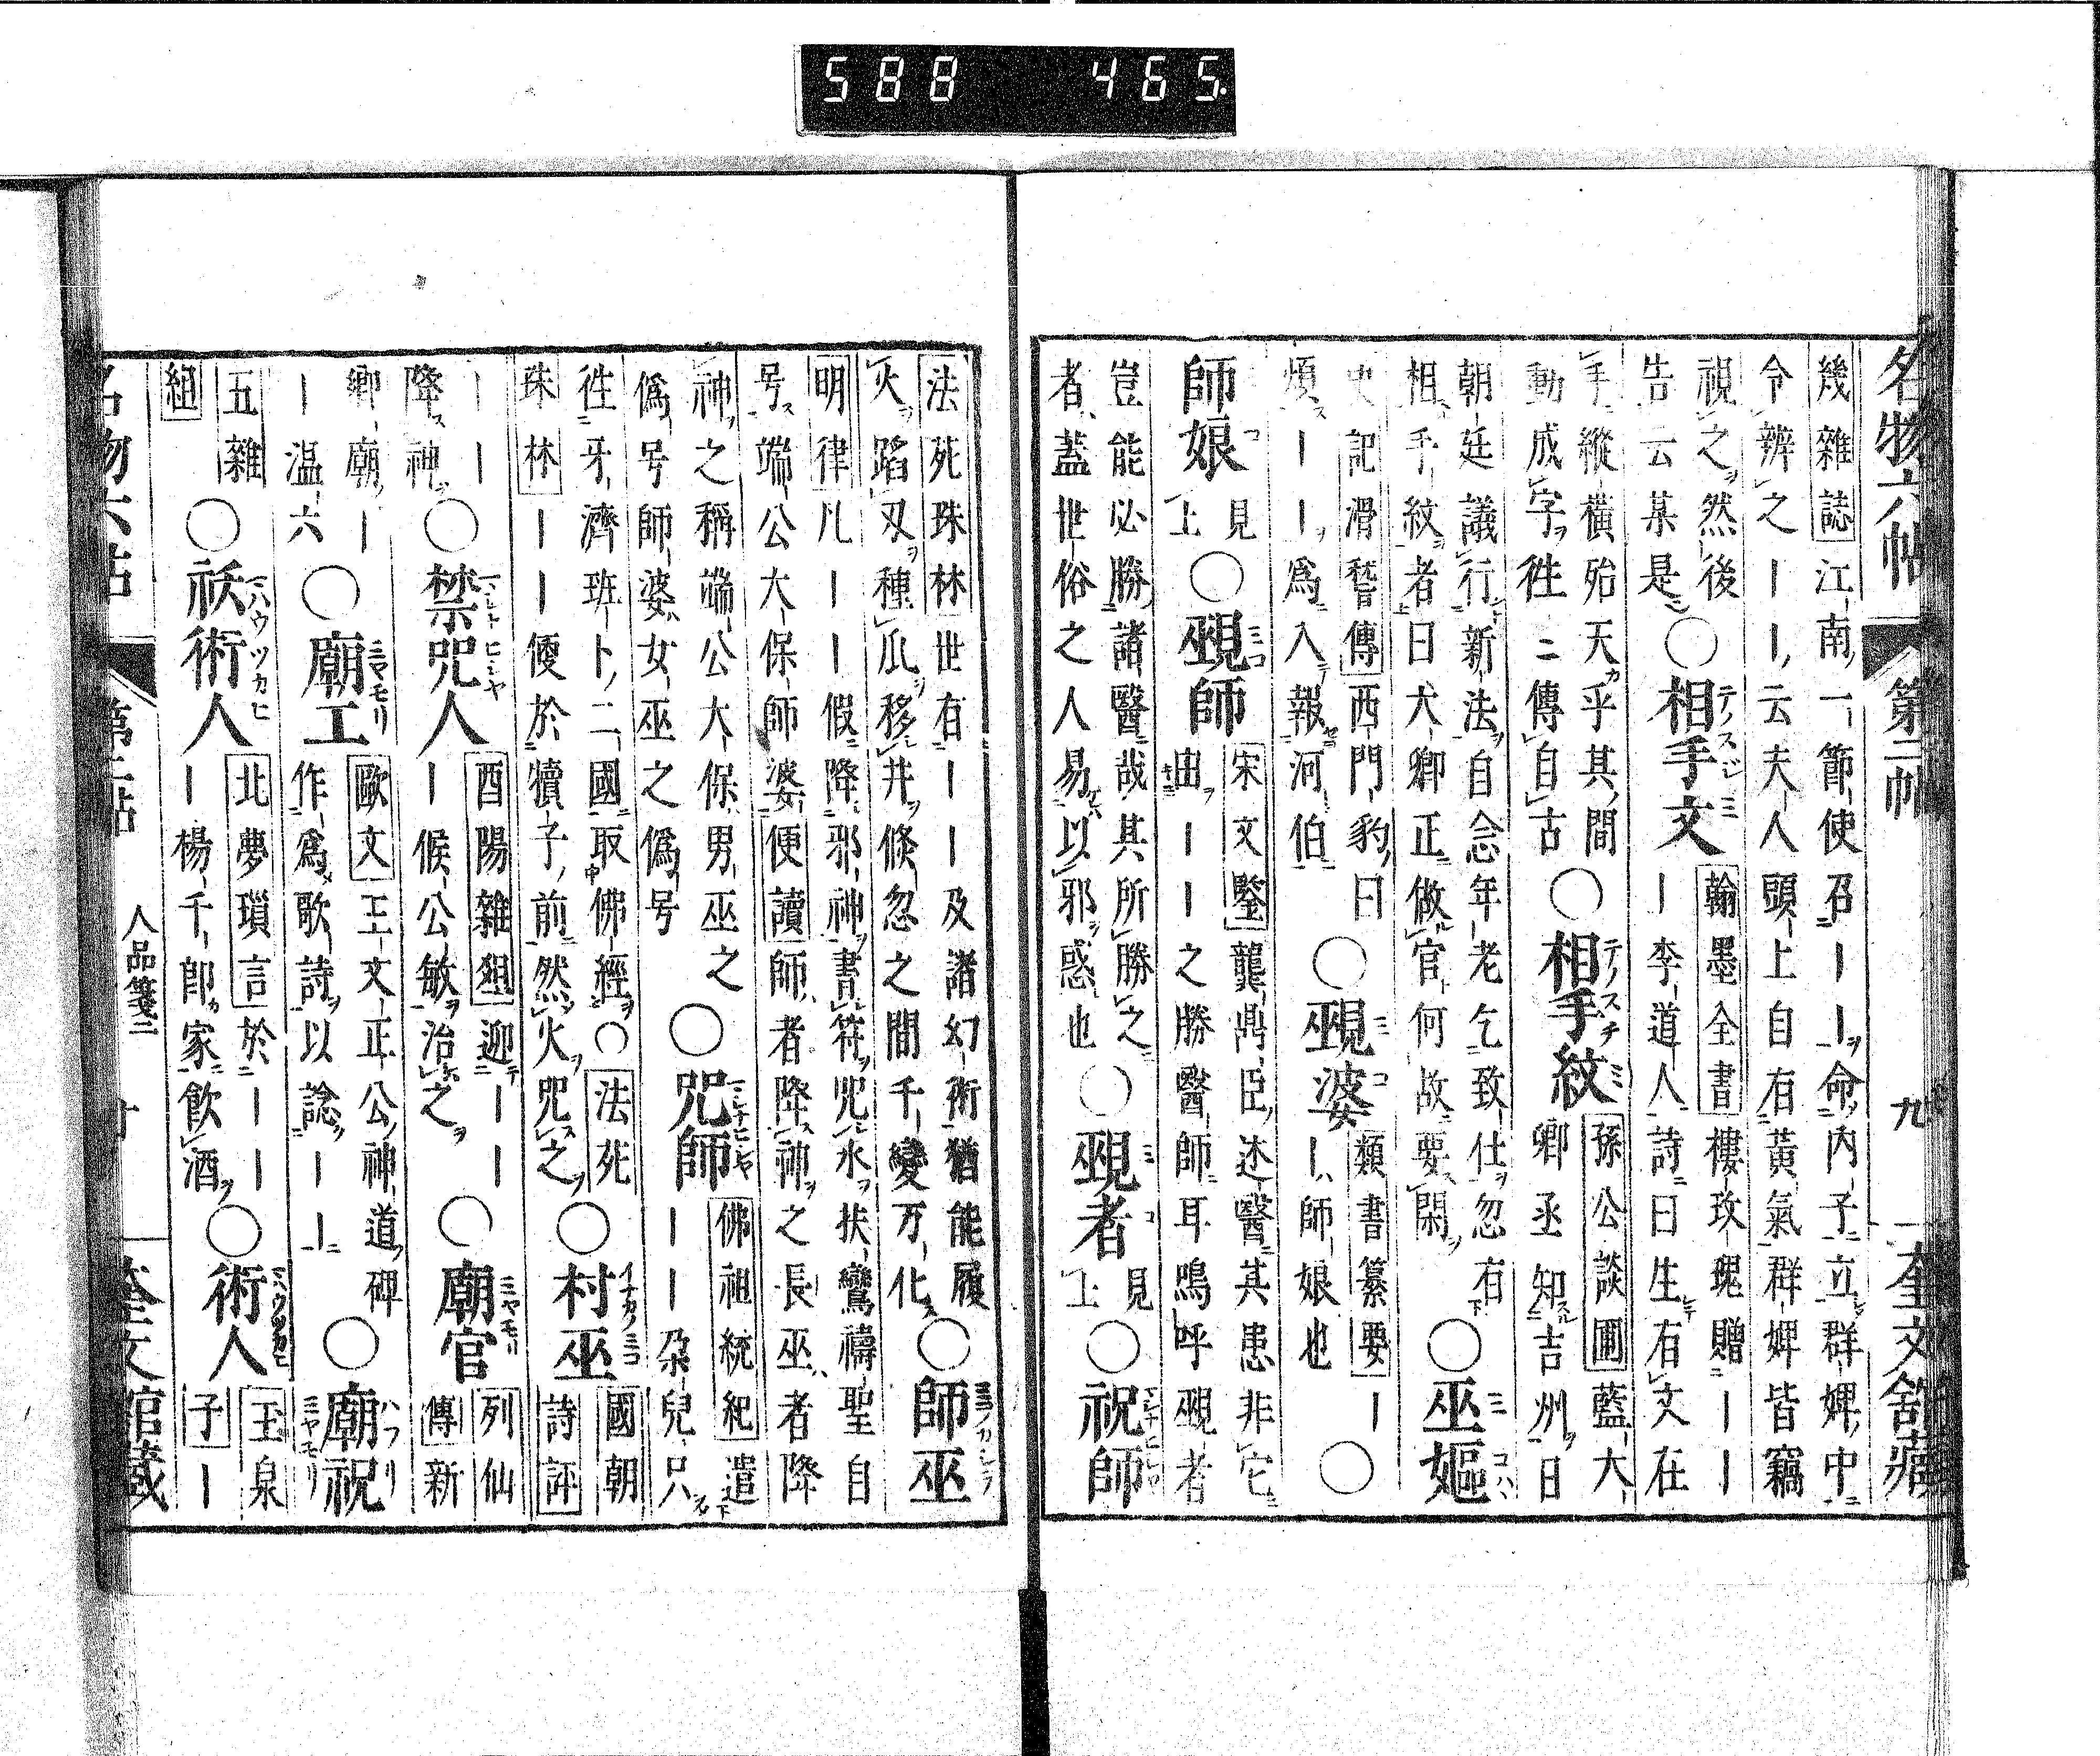 588 465
名物六帖 第二帖 九 奎文舘藏
幾雜誌江南一節使召ーー命内子立群婢中
令辨之ーー云夫人頭上自有黃氣群婢皆竊
視之然後
告云某是
○相手文
翰墨全書樓玫瑰贈ーー
ー李道人詩曰生有文在
手縱橫殆天乎其間
動成字徃〻傳自古
○相手紋
孫公談圃藍大
卿丞知吉州日
朝廷議行新法自念年老乞致仕忽有
相手紋者曰大卿正做官何故要閑
○巫嫗
史記滑稽傳西門豹曰
煩ーー爲入報河伯
○覡婆
類書纂要ー
ー師娘也
○
師娘
見上
○覡師
宋文鑒龔鼎臣述醫其患非它
由ーー之勝醫師耳鳴呼覡者
豈能必勝諸醫哉其所勝之
者蓋世俗之人易以邪惑也
○覡者
見上
○祝師
法苑珠林世有ーー及諸幻術猶能履
火蹈刃種瓜移井倐忽之間千變万化
○師巫
明律凡ーー假降邪神書符咒水扶鸞禱聖自
号端公大保師婆便讀師者降神之長巫者降
神之稱端公大保男巫之
偽号師婆女巫之偽号
○咒師
佛祖統紀遣
ーー朶兒只
徃牙濟班卜二國取佛經○法苑
珠林ーー便於犢子前然火咒之
○村巫
國朝
詩評
ーー
降神
○禁咒人
酉陽雜俎迎ーー
ー候公敏治之
○廟官
列仙
傳新
卿廟ー
ー温六
○廟工
歐文王文正公神道碑
作爲歌詩以諗ーー
○廟祝
玉泉
子ー
五雜
組
○祅術人
北夢瑣言於ーー
ー楊千郎家飲酒
○術人
名物六帖 第二帖 人品箋二 十 奎文舘藏